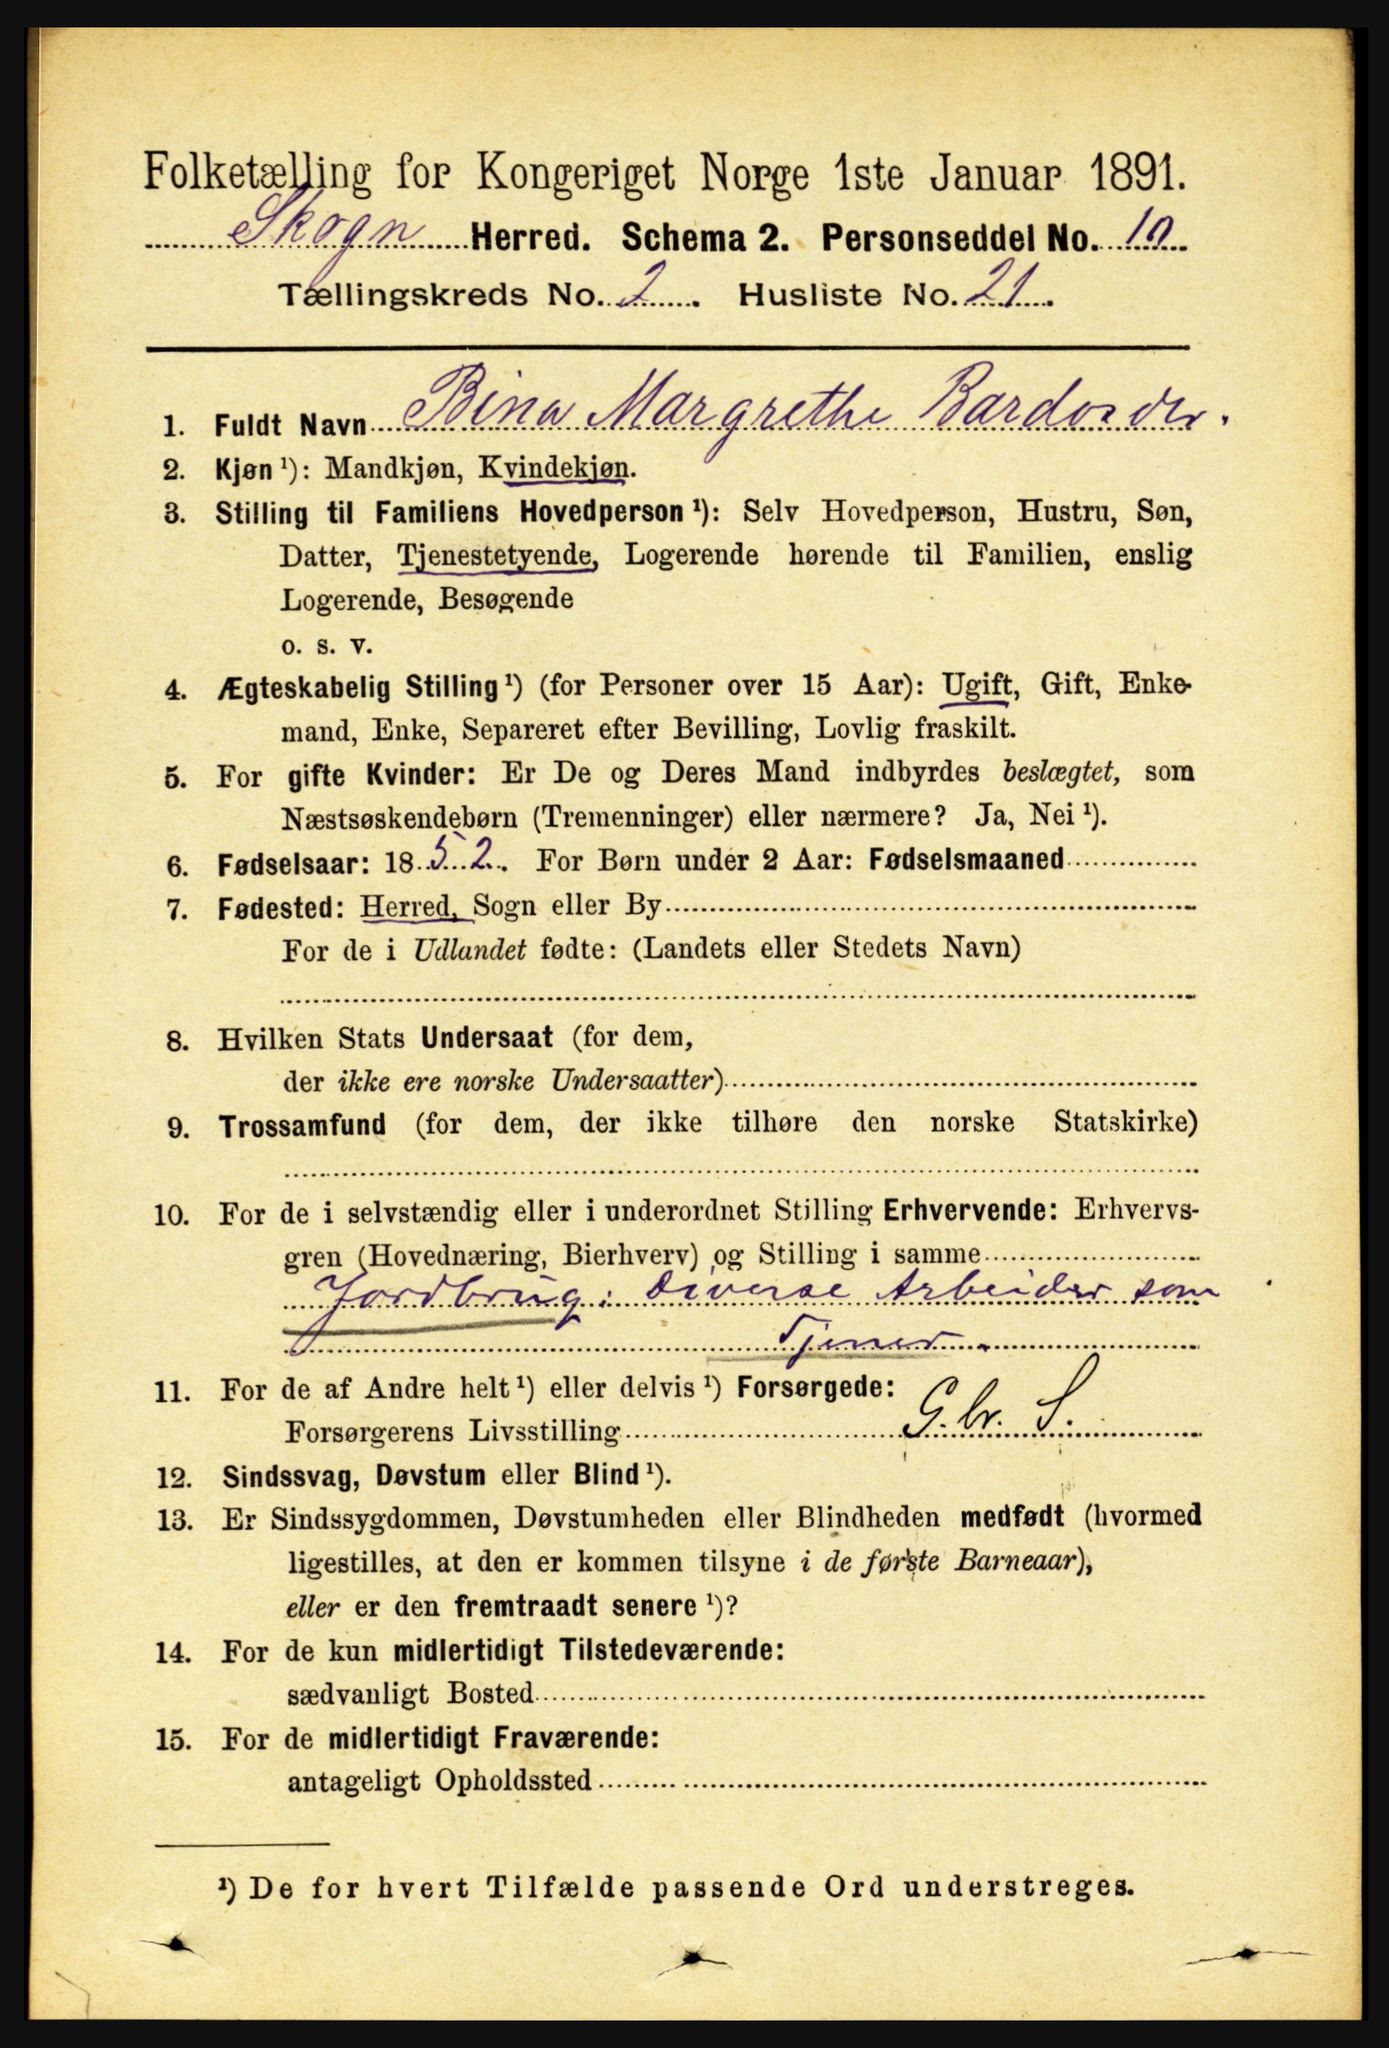 Folketælling for Kongeriget Norge 1ste Januar 1891.
Skogn Herred. Schema 2. Personseddel No. 10
Tællingskreds No. 2. Husliste No. 21.
1. Fuldt Navn Bina Margrethe Bardosdtr.
2. Kjøn ¹): Mandkjøn, Kvindekjøn.
3. Stilling til Familiens Hovedperson ¹): Selv Hovedperson, Hustru, Søn,
Datter, Tjenestetyende, Logerende hørende til Familien, enslig
Logerende, Besøgende
o. s. v.
4. Ægteskabelig Stilling ¹) (for Personer over 15 Aar): Ugift, Gift, Enke-
mand, Enke, Separeret efter Bevilling, Lovlig fraskilt.
5. For gifte Kvinder: Er De og Deres Mand indbyrdes beslægtet, som
Næstsøskendebørn (Tremenninger) eller nærmere? Ja, Nei ¹).
6. Fødselsaar: 1852. For Børn under 2 Aar: Fødselsmaaned
7. Fødested: Herred, Sogn eller By
For de i Udlandet fødte: (Landets eller Stedets Navn)
8. Hvilken Stats Undersaat (for dem,
der ikke ere norske Undersaatter)
9. Trossamfund (for dem, der ikke tilhøre den norske Statskirke)
10. For de i selvstændig eller i underordnet Stilling Erhvervende: Erhvervs-
gren (Hovednæring, Bierhverv) og Stilling i samme
Jordbrug: Diverse Arbeider som
Tjener.
11. For de af Andre helt ¹) eller delvis ¹) Forsørgede:
Forsørgerens Livsstilling G.br. S.
12. Sindssvag, Døvstum eller Blind ¹).
13. Er Sindssygdommen, Døvstumheden eller Blindheden medfødt (hvormed
ligestilles, at den er kommen tilsyne i de første Barneaar),
eller er den fremtraadt senere ¹)?
14. For de kun midlertidigt Tilstedeværende:
sædvanligt Bosted
15. For de midlertidigt Fraværende:
antageligt Opholdssted
¹) De for hvert Tilfælde passende Ord understreges.